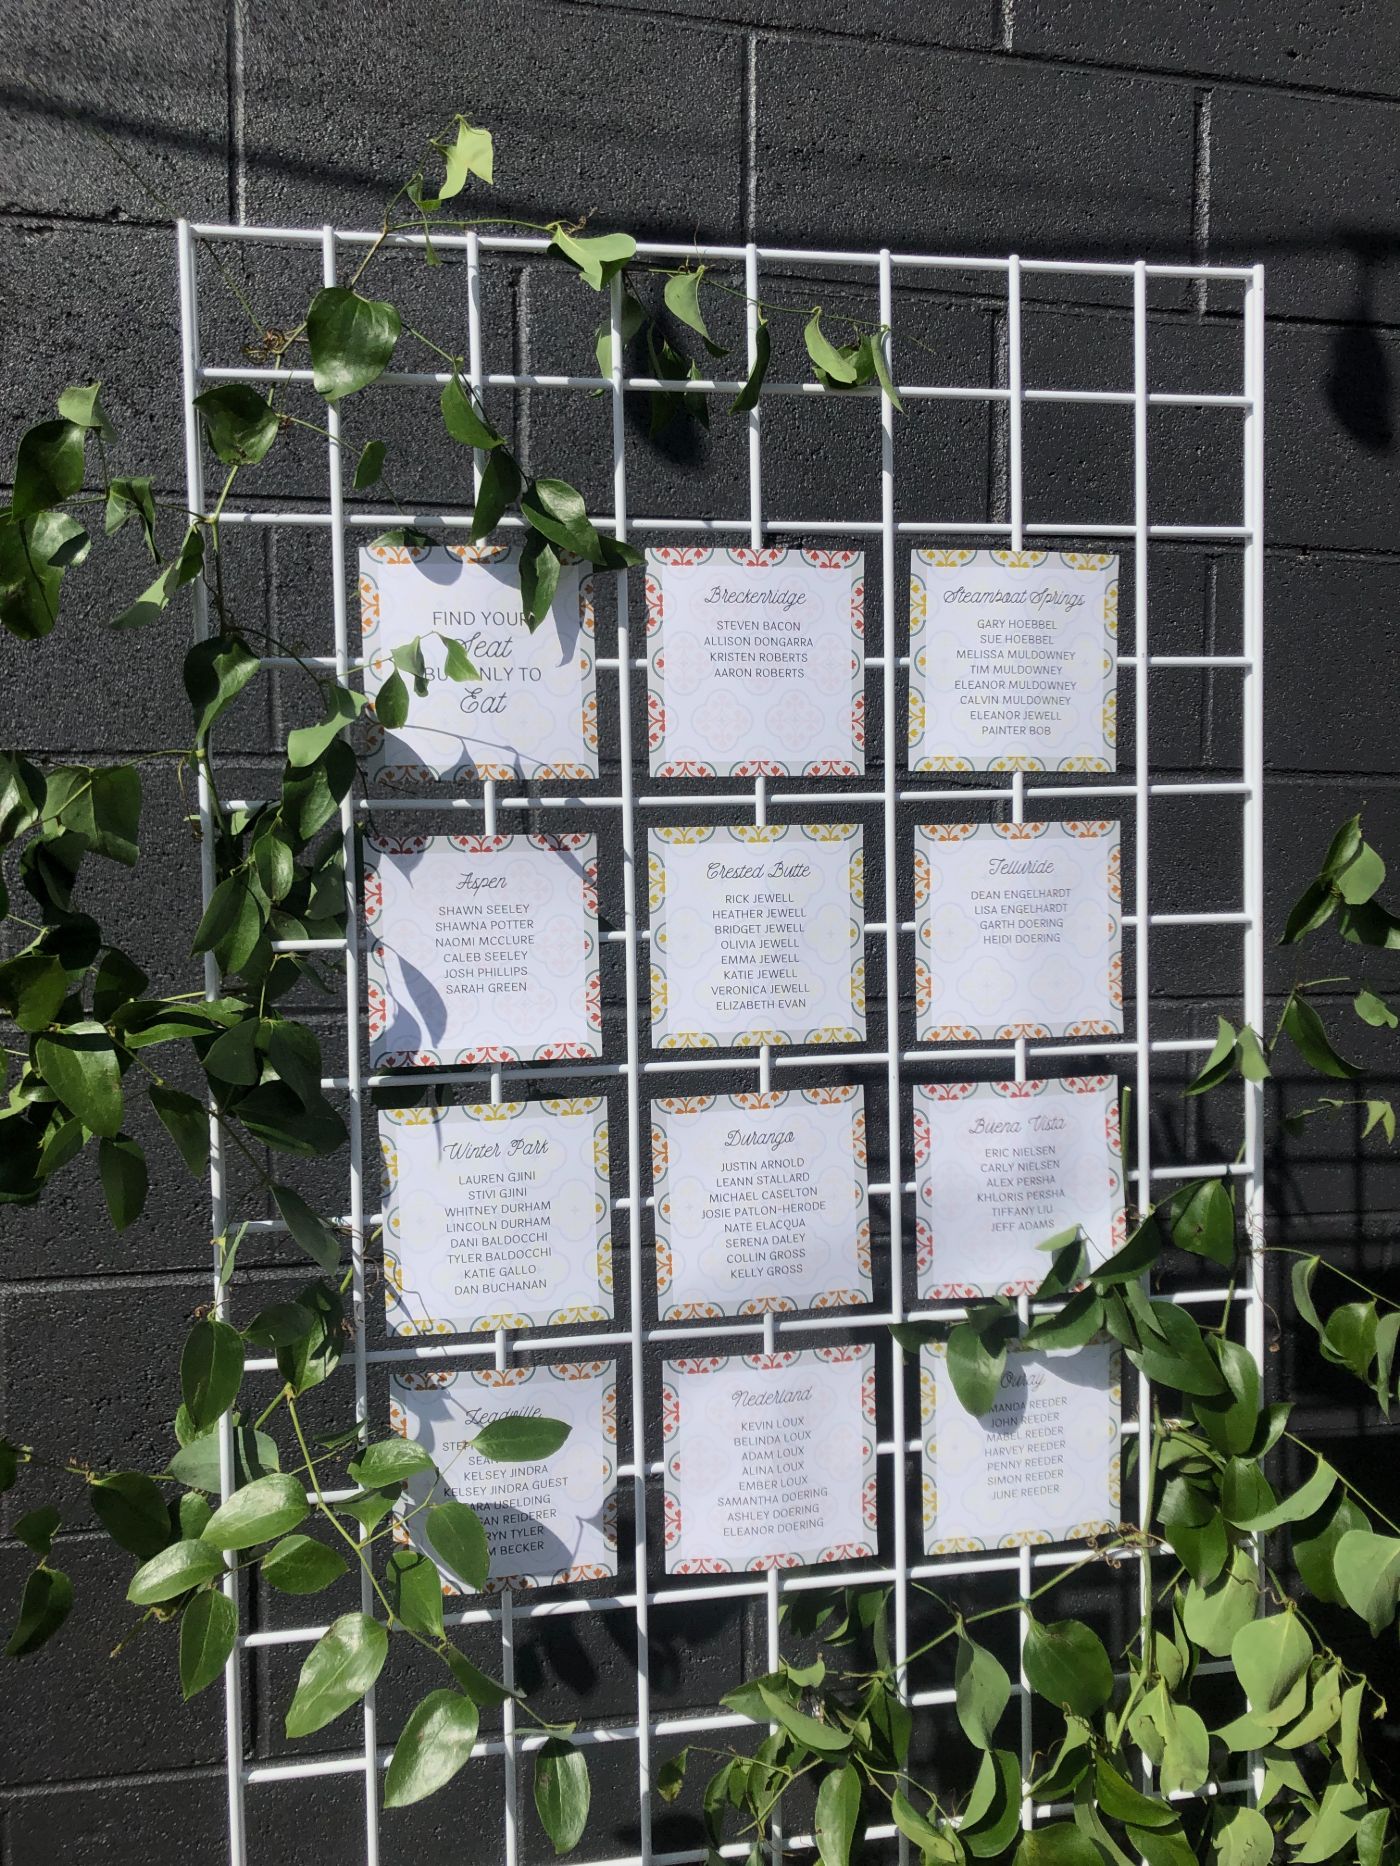 FIND YOUR
Seat
ONLY TO
Eat
Breckenridge
STEVEN BACON
ALLISON DONGARRA
KRISTEN ROBERTS
AARON ROBERTS
Steamboat Springs
GARY HOEBBEL
SUE HOEBBEL
MELISSA MULDOWNEY
TIM MULDOWNEY
ELEANOR MULDOWNEY
CALVIN MULDOWNEY
ELEANOR JEWELL
PAINTER BOB
Aspen
SHAWN SEELEY
SHAWNA POTTER
NAOMI MCCLURE
CALEB SEELEY
JOSH PHILLIPS
SARAH GREEN
Crested Butte
RICK JEWELL
HEATHER JEWELL
BRIDGET JEWELL
OLIVIA JEWELL
EMMA JEWELL
KATIE JEWELL
VERONICA JEWELL
ELIZABETH EVAN
Telluride
DEAN ENGELHARDT
LISA ENGELHARDT
GARTH DOERING
HEIDI DOERING
Winter Park
LAUREN GJINI
STIVI GJINI
WHITNEY DURHAM
LINCOLN DURHAM
DANI BALDOCCHI
TYLER BALDOCCHI
KATIE GALLO
DAN BUCHANAN
Durango
JUSTIN ARNOLD
LEANN STALLARD
MICHAEL CASELTON
JOSIE PATLON-HERODE
NATE ELACQUA
SERENA DALEY
COLLIN GROSS
KELLY GROSS
Buena Vista
ERIC NIELSEN
CARLY NIELSEN
ALEX PERSHA
KHLORIS PERSHA
TIFFANY LIU
JEFF ADAMS
Leadville
KELSEY JINDRA
KELSEY JINDRA GUEST
USELDING
REIDERER
TYLER
BECKER
Nederland
KEVIN LOUX
BELINDA LOUX
ADAM LOUX
ALINA LOUX
EMBER LOUX
SAMANTHA DOERING
ASHLEY DOERING
ELEANOR DOERING
Ouray
REEDER
JOHN REEDER
MABEL REEDER
HARVEY REEDER
PENNY REEDER
SIMON REEDER
JUNE REEDER